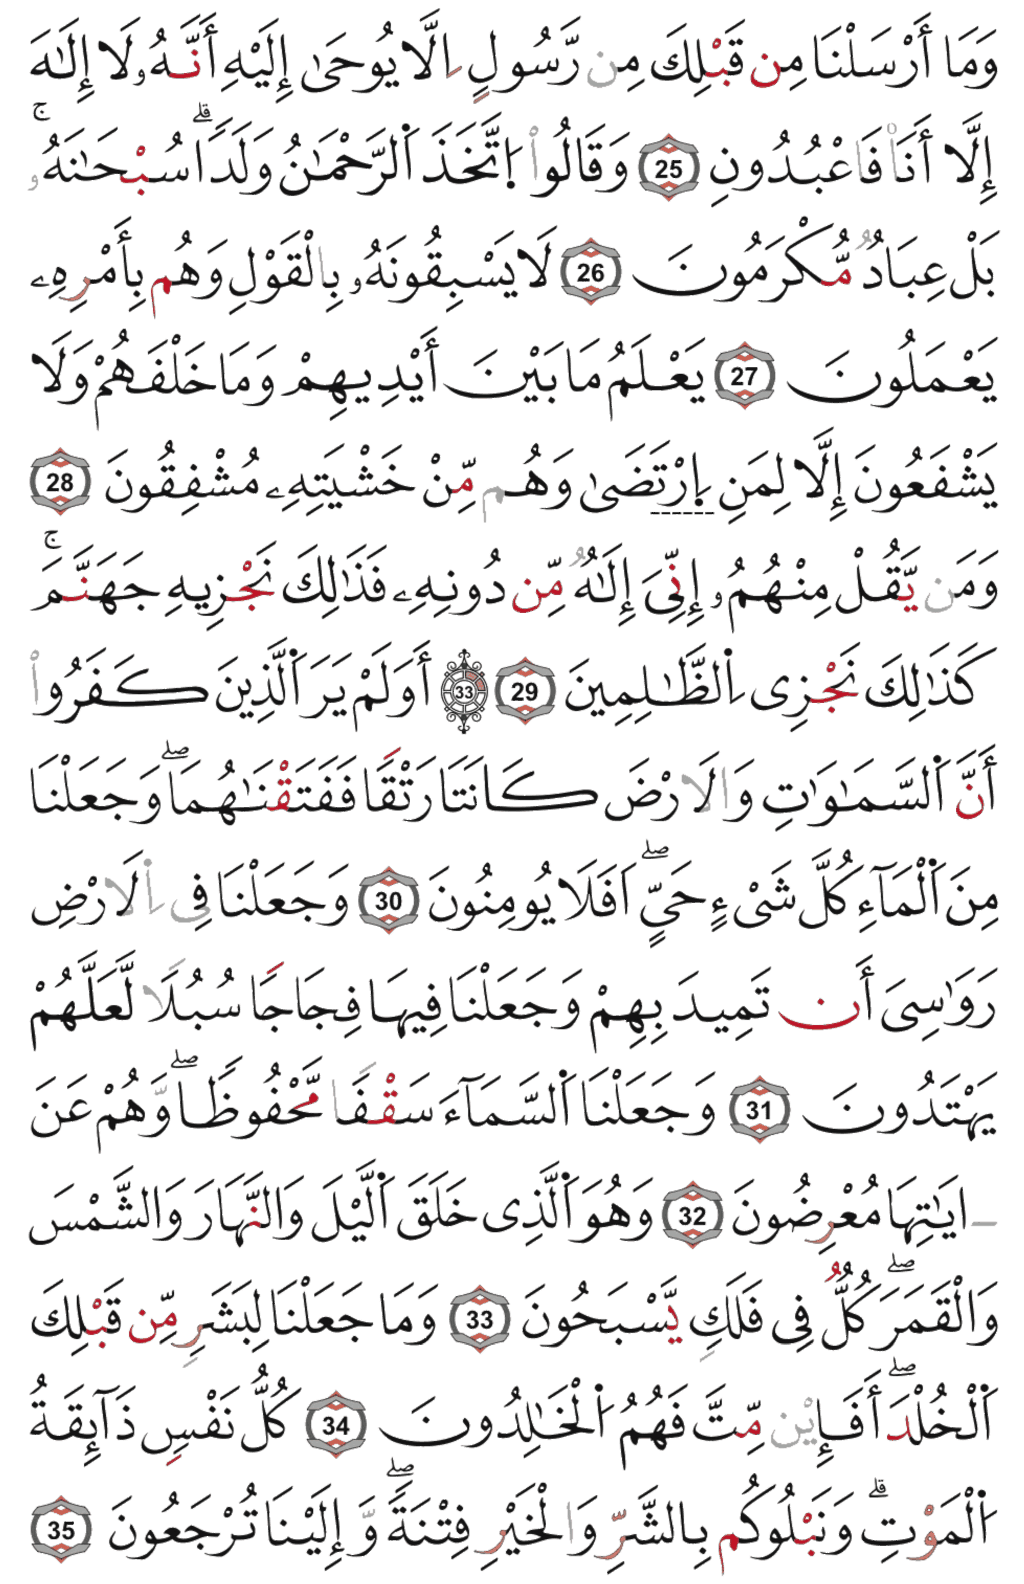 وَمَا أَرْسَلْنَا مِن قَبْلِكَ مِن رَّسُولٍ اِلَّا يُوحَىٰ إِلَيْهِ أَنَّهُۥ لَا إِلَٰهَ
إِلَّا أَنَا۠ فَاعْبُدُونِ 25 وَقَالُوا۟ اِ۪تَّخَذَ اَ۬لرَّحْمَٰنُ وَلَدًاۗ سُبْحَٰنَهُۥۚ
بَلْ عِبَادٌ مُّكْرَمُونَ 26 لَا يَسْبِقُونَهُۥ بِالْقَوْلِ وَهُم بِأَمْرِهِۦ
يَعْمَلُونَ 27 يَعْلَمُ مَا بَيْنَ أَيْدِيهِمْ وَمَا خَلْفَهُمْ وَلَا
يَشْفَعُونَ إِلَّا لِمَنِ اِ۪رْتَضَىٰ وَهُم مِّنْ خَشْيَتِهِۦ مُشْفِقُونَ 28
وَمَن يَّقُلْ مِنْهُمُۥ إِنِّىَ إِلَٰهٌ مِّن دُونِهِۦ فَذَٰلِكَ نَجْزِيهِ جَهَنَّمَۚ
كَذَٰلِكَ نَجْزِى اِ۬لظَّٰلِمِينَ 29 33 أَوَلَمْ يَرَ اَ۬لَّذِينَ كَفَرُوا۟
أَنَّ اَ۬لسَّمَٰوَٰتِ وَالَارْضَ كَانَتَا رَتْقًا فَفَتَقْنَٰهُمَاۖ وَجَعَلْنَا
مِنَ اَ۬لْمَآءِ كُلَّ شَىْءٍ حَيٍّۖ اَفَلَا يُومِنُونَ 30 وَجَعَلْنَا فِى اِ۬لَارْضِ
رَوَٰسِىَ أَن تَمِيدَ بِهِمْ وَجَعَلْنَا فِيهَا فِجَاجًا سُبُلًا لَّعَلَّهُمْ
يَهْتَدُونَ 31 وَجَعَلْنَا اَ۬لسَّمَآءَ سَقْفًا مَّحْفُوظًاۖ وَّهُمْ عَنَ
ـايَٰتِهَا مُعْرِضُونَ 32 وَهُوَ اَ۬لَّذِى خَلَقَ اَ۬لَّيْلَ وَالنَّهَارَ وَالشَّمْسَ
وَالْقَمَرَۖ كُلٌّ فِى فَلَكٍ يَّسْبَحُونَ 33 وَمَا جَعَلْنَا لِبَشَرٍ مِّن قَبْلِكَ
اَ۬لْخُلْدَۖ أَفَإِي۟ن مِّتَّ فَهُمُ اُ۬لْخَٰلِدُونَ 34 كُلُّ نَفْسٍ ذَآئِقَةُ
اُ۬لْمَوْتِۗ وَنَبْلُوكُم بِالشَّرِّ وَالْخَيْرِ فِتْنَةًۖ وَّإِلَيْنَا تُرْجَعُونَ 35